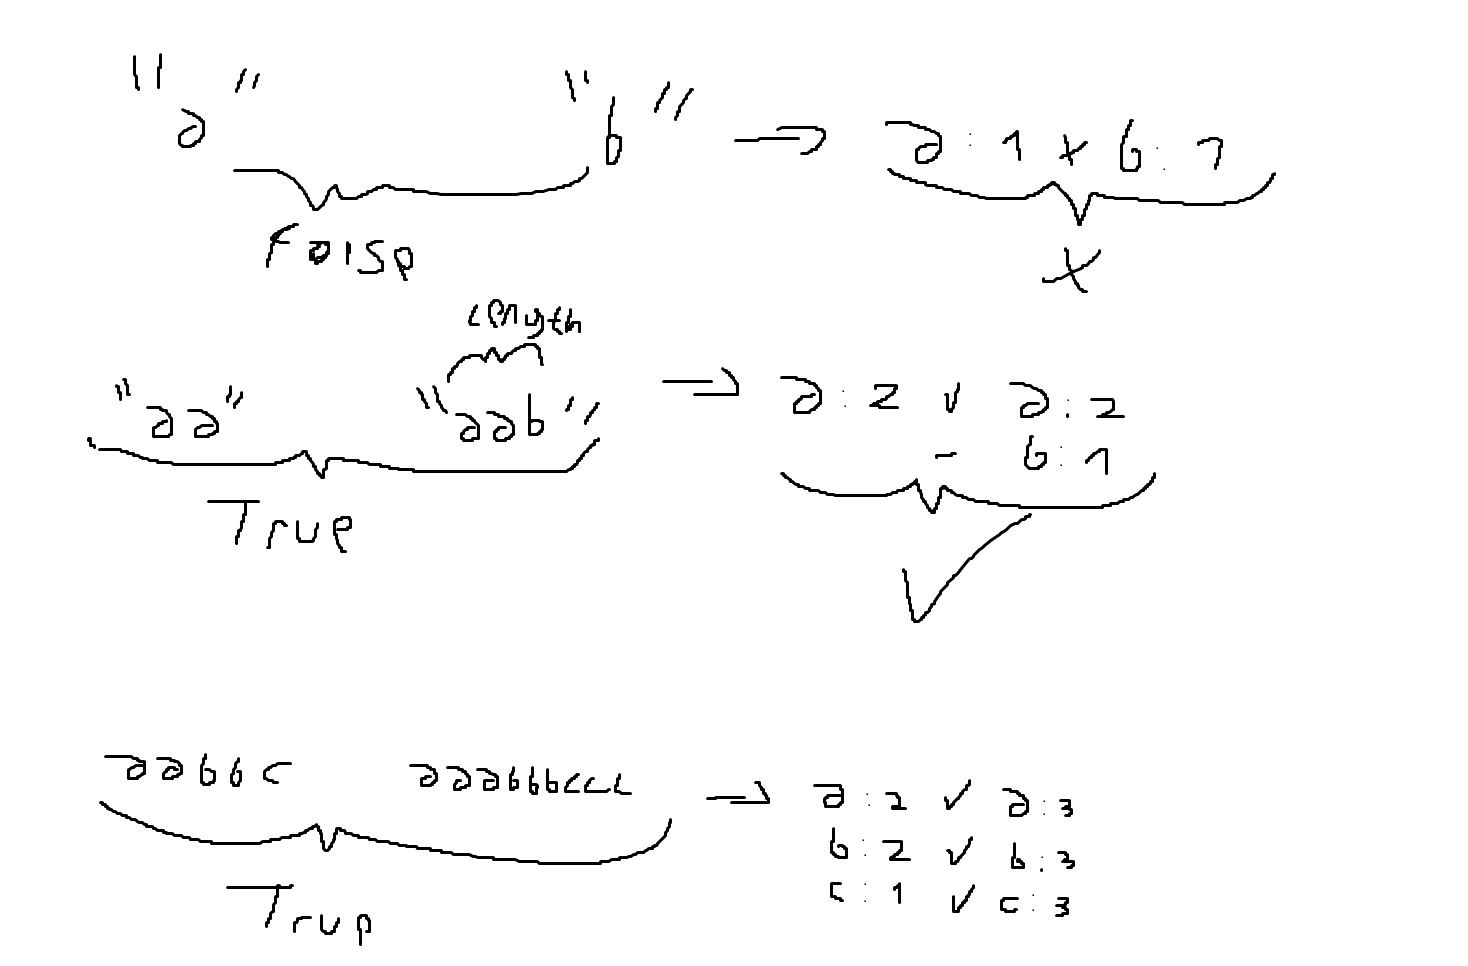 "a" "b" → a : 1 x b : 1
False x
length
"aa" "aab" → a : 2 ✓ a : 2
- b : 1
True ✓
aabbc aaabbbccc → a : 2 ✓ a : 3
b : 2 ✓ b : 3
c : 1 ✓ c : 3
True